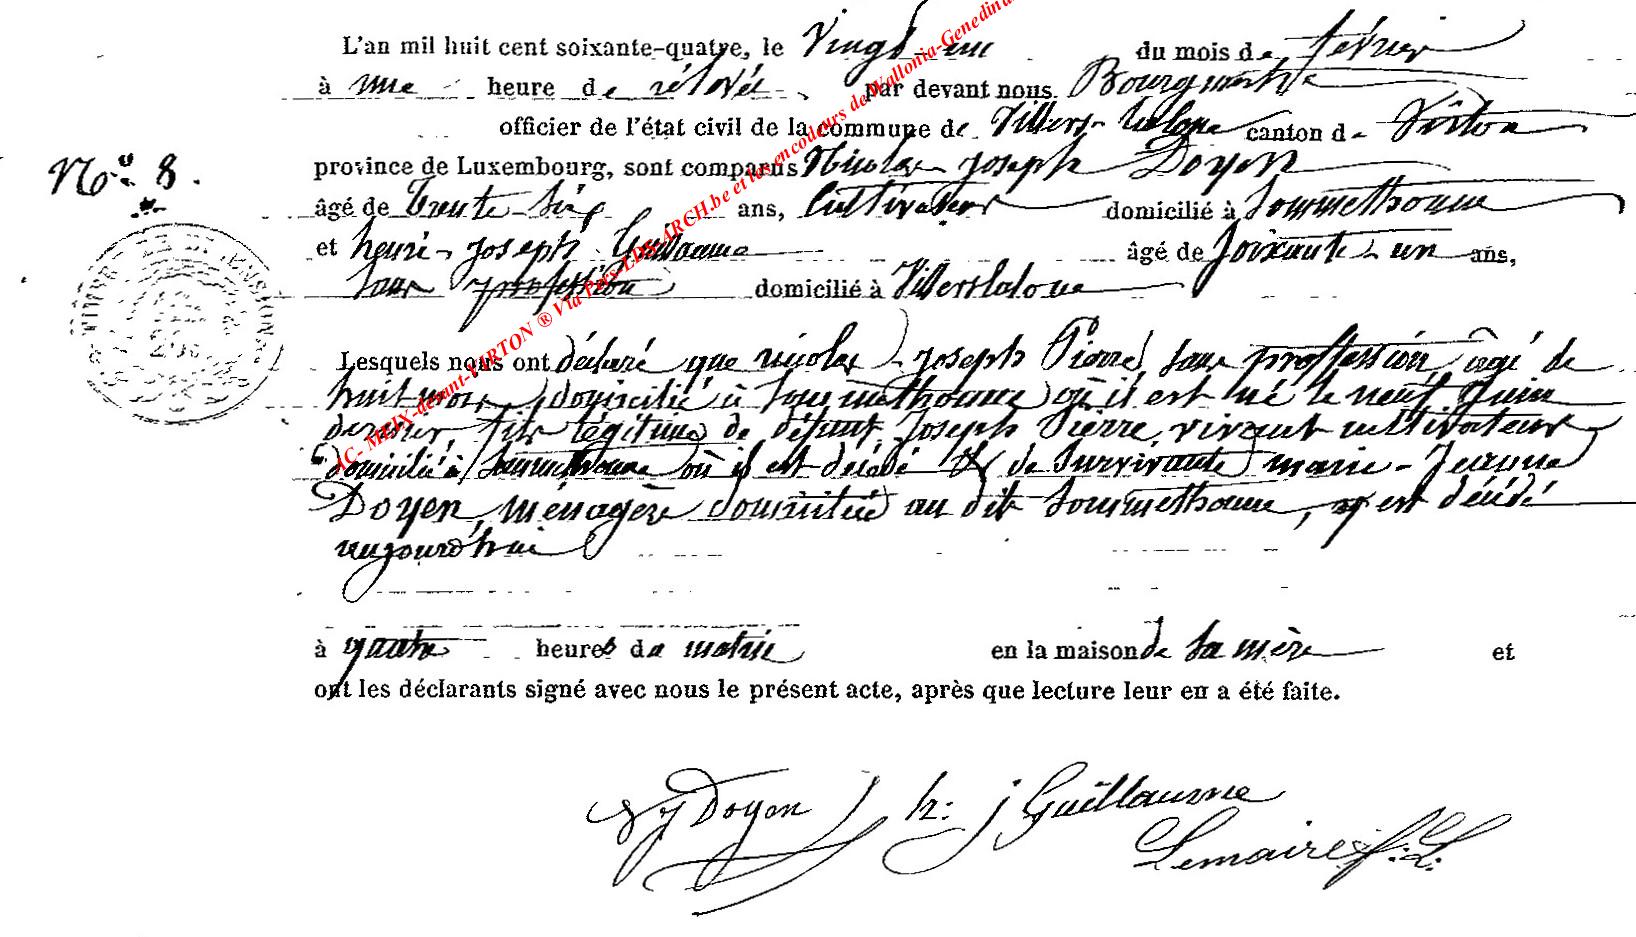 L'an mil huit cent soixante-quatre, le Vingt-un du mois de février
à une heure de rélevée par devant nous Bourgmestre
officier de l'état civil de la commune de Villers-laloue canton de Virton
province de Luxembourg, sont comparus Nicolas-Joseph Doyen
N.º 8.
âgé de Trente-six ans, Cultivateur domicilié à Sommethonne
et henri-Joseph Guillaume âgé de Soixante-un ans,
Sans profession domicilié à Villerslaloue
Lesquels nous ont déclaré que nicolas-Joseph Pierre, sans proffession âgé de
huit mois, domicilié à Sommethonne où il est né le neuf Juin
dernier, fils légitime de défunt Joseph Pierre, vivant cultivateur
domicilié à Sommethonne où il est décédé & de Survivante marie-Jeanne
Doyen, ménagère domiciliée au dit Sommethonne, y est décédé
aujourd'hui
à quatre heures du matin en la maison de sa mère et
ont les déclarants signé avec nous le présent acte, après que lecture leur en a été faite.
Doyen h: j Guillaume
Lemaire
AC- MEIX-devant-VIRTON ® Via Pers-LUX-ARCH.be et les encodeurs de Wallonia-Genedin